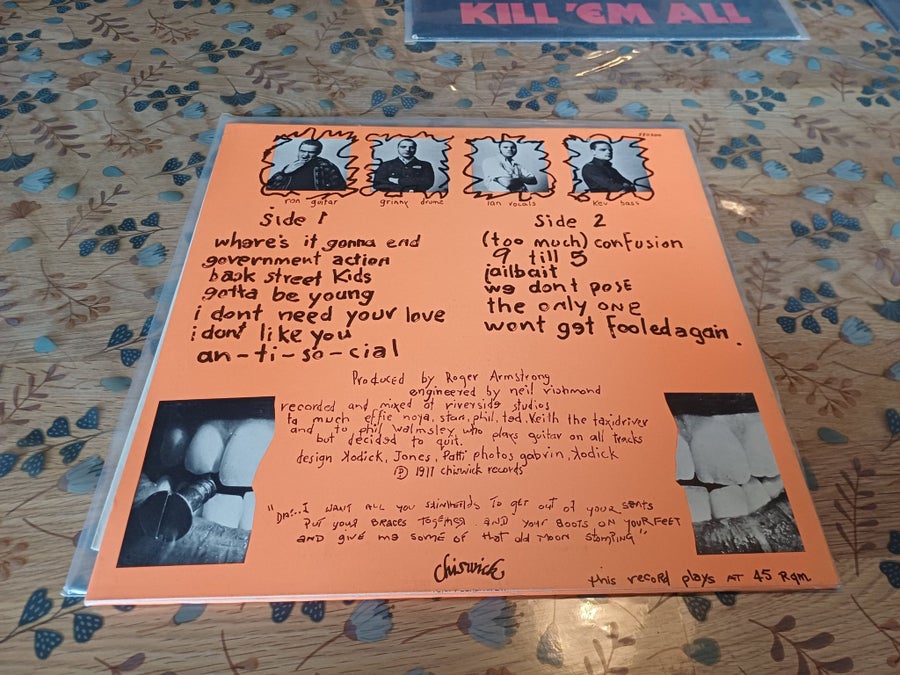 KILL 'EM ALL
ron guitar
grinny drums
ian vocals
kev bass
Side 1
where's it gonna end
government action
back street kids
gotta be young
i dont need your love
i dont like you
an-ti-so-cial
Side 2
(too much) confusion
9 till 5
jailbait
we dont pose
the only one
wont get fooled again.
Produced by Roger Armstrong
engineered by neil richmond
recorded and mixed at riverside studios
ta much effie noya, stan, phil, ted, keith the taxidriver
and to phil walmsley who plays guitar on all tracks
but decided to quit.
design Kodick, Jones, Patti photos gabrin, Kodick
Ⓟ 1977 chiswick records
I WANT ALL you SkiNheads To get out of your seats
PUT your BRACES Together AND YOUR BOOTS ON YOUR FEET
AND give me some of that old MOON Stomping"
chiswick
this record plays AT 45 Rpm